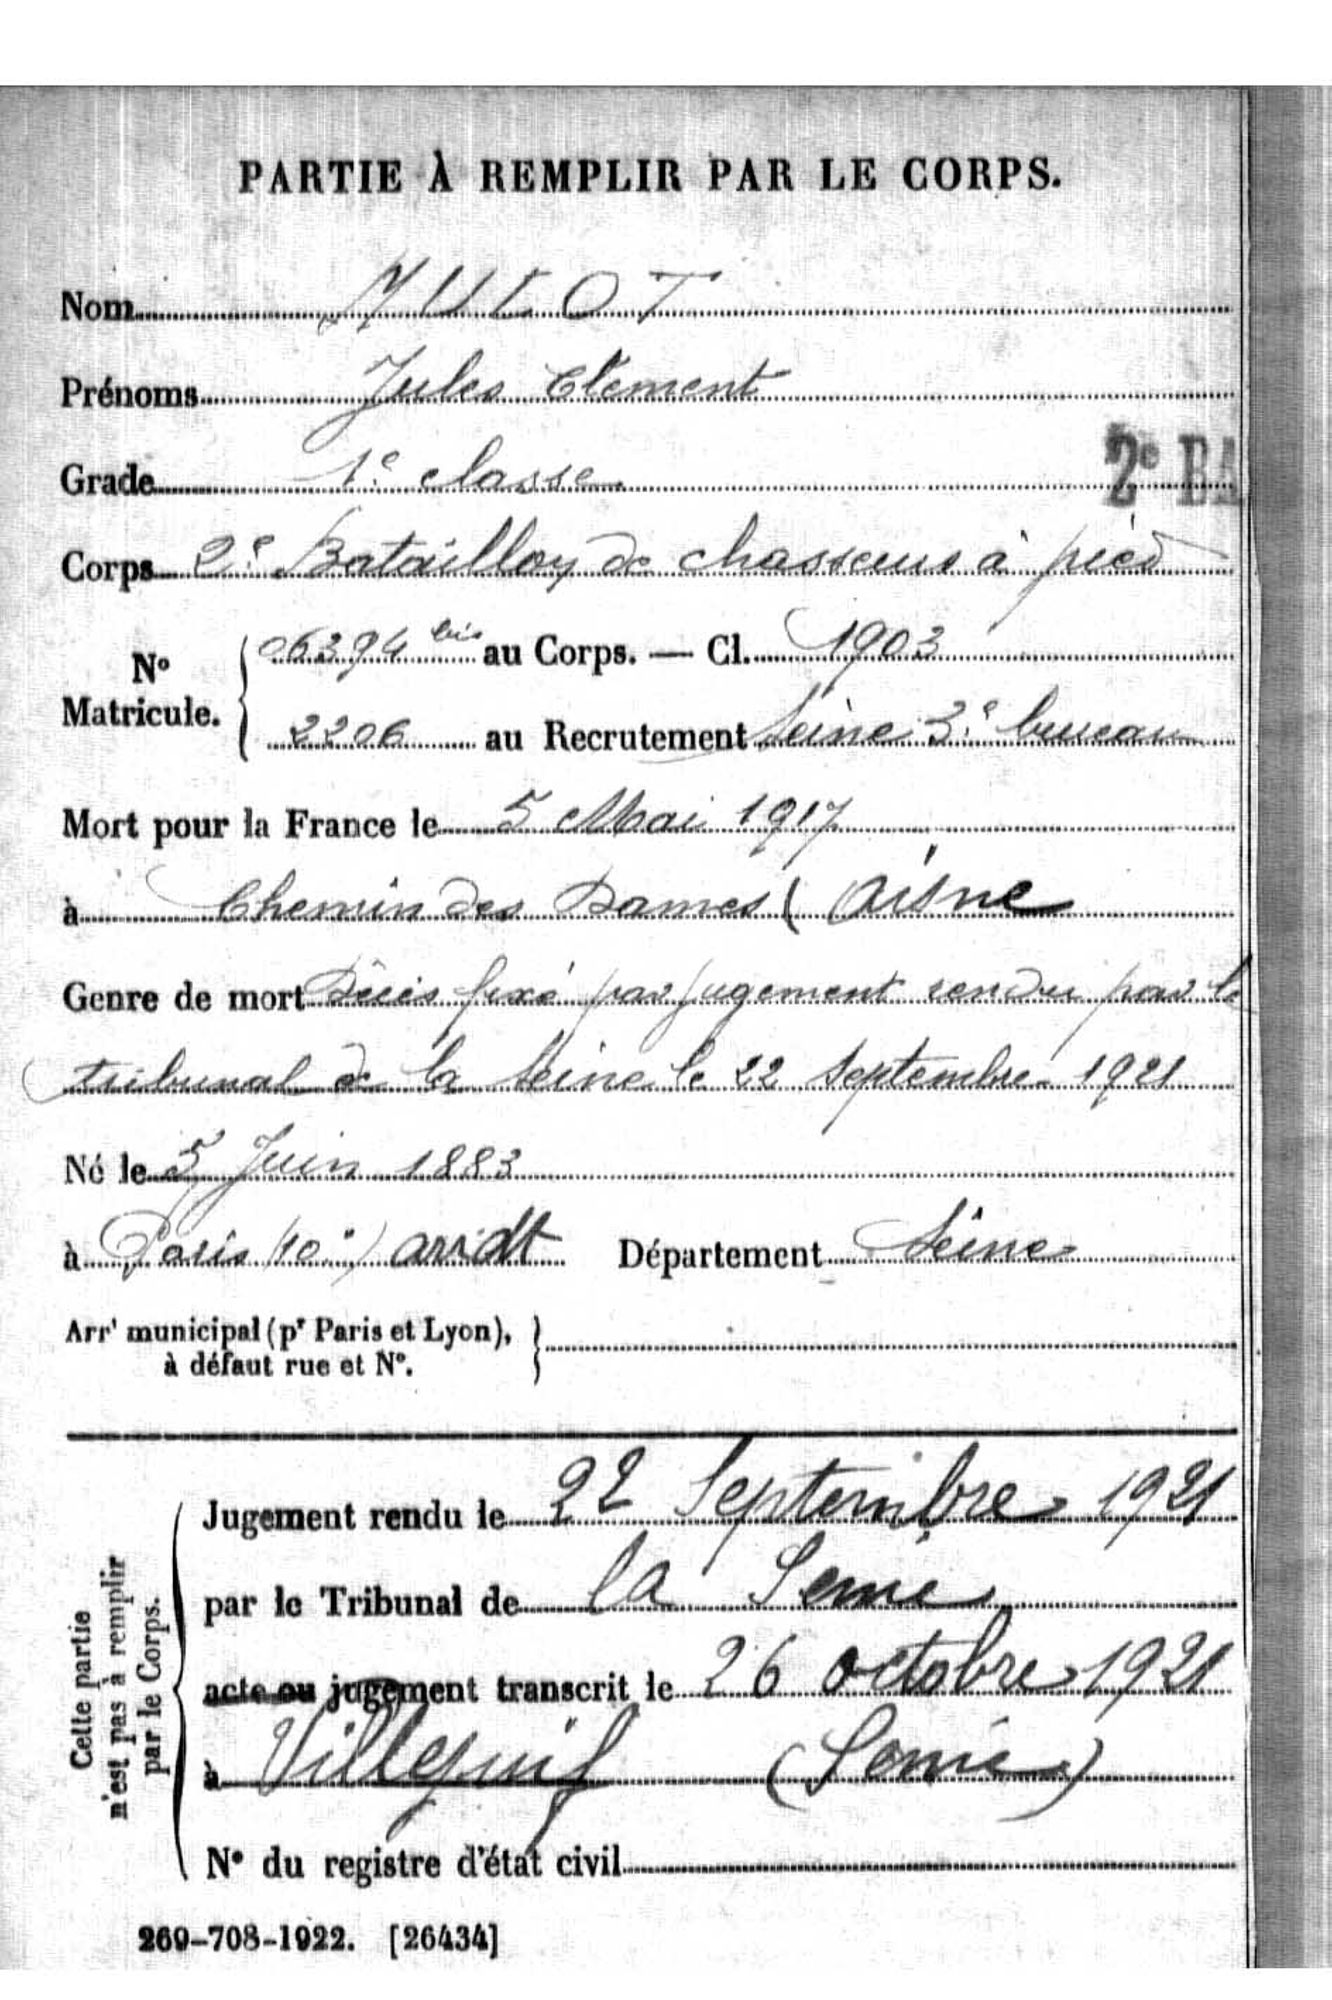 PARTIE À REMPLIR PAR LE CORPS.
Nom MULOT
Prénoms Jules Clément
Grade 1e classe
2e BA
Corps 2e Bataillon de chasseurs à pied
No Matricule. 06394 bis au Corps. — Cl. 1903
2206 au Recrutement Seine 3e bureau
Mort pour la France le 5 Mai 1917
à Chemin des Dames ( Aisne
Genre de mort Décès fixé par jugement rendu par le
tribunal de la Seine le 22 Septembre 1921
Né le 5 Juin 1883
à Paris (10e) arrdt Département Seine
Arrt municipal (pr Paris et Lyon),
à défaut rue et No.
Cette partie
n'est pas à remplir
par le Corps.
Jugement rendu le 22 Septembre 1921
par le Tribunal de la Seine
acte ou jugement transcrit le 26 octobre 1921
à Villejuif (Seine)
No du registre d'état civil
269-708-1922. [26434]